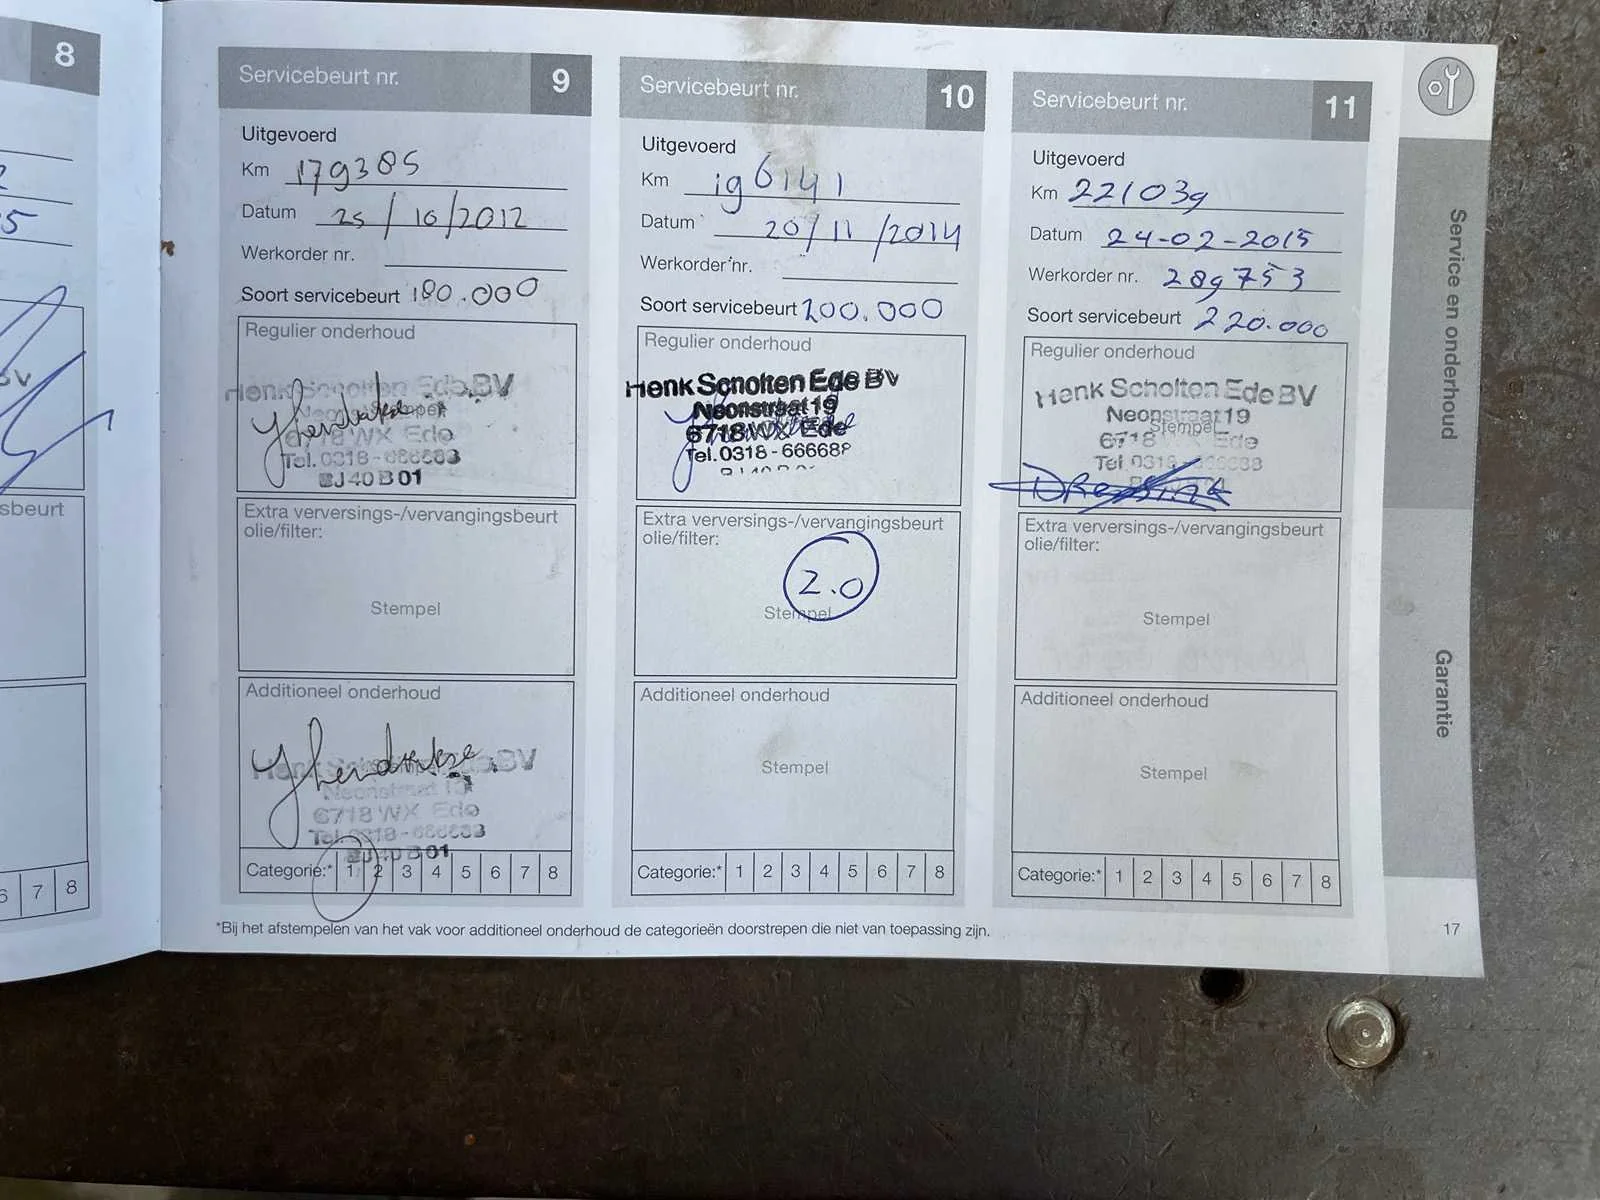 8
5
sbeurt
6 7 8
Servicebeurt nr. 9
Uitgevoerd
Km 179385
Datum 25/10/2012
Werkorder nr.
Soort servicebeurt 180.000
Regulier onderhoud
Henk Scholten Ede BV
Neonstraat
Stempel
6718 WX Ede
Tel. 0318-666688
BJ40B01
Extra verversings-/vervangingsbeurt
olie/filter:
Stempel
Additioneel onderhoud
Henk Scholten Ede BV
Neonstraat 19
6718 WX Ede
Tel. 0318-666688
BJ40B01
Categorie:* 1 2 3 4 5 6 7 8
Servicebeurt nr. 10
Uitgevoerd
Km 196141
Datum 20/11/2014
Werkorder nr.
Soort servicebeurt 200.000
Regulier onderhoud
Henk Scholten Ede BV
Neonstraat 19
6718 WX Ede
Tel. 0318-666688
Extra verversings-/vervangingsbeurt
olie/filter:
2.0
Stempel
Additioneel onderhoud
Stempel
Categorie:* 1 2 3 4 5 6 7 8
Servicebeurt nr. 11
Uitgevoerd
Km 221039
Datum 24-02-2015
Werkorder nr. 289753
Soort servicebeurt 220.000
Regulier onderhoud
Henk Scholten Ede BV
Neonstraat 19
Stempel
6718 WX Ede
Tel 0318-666688
Extra verversings-/vervangingsbeurt
olie/filter:
Stempel
Additioneel onderhoud
Stempel
Categorie:* 1 2 3 4 5 6 7 8
*Bij het afstempelen van het vak voor additioneel onderhoud de categorieën doorstrepen die niet van toepassing zijn.
Service en onderhoud
Garantie
17